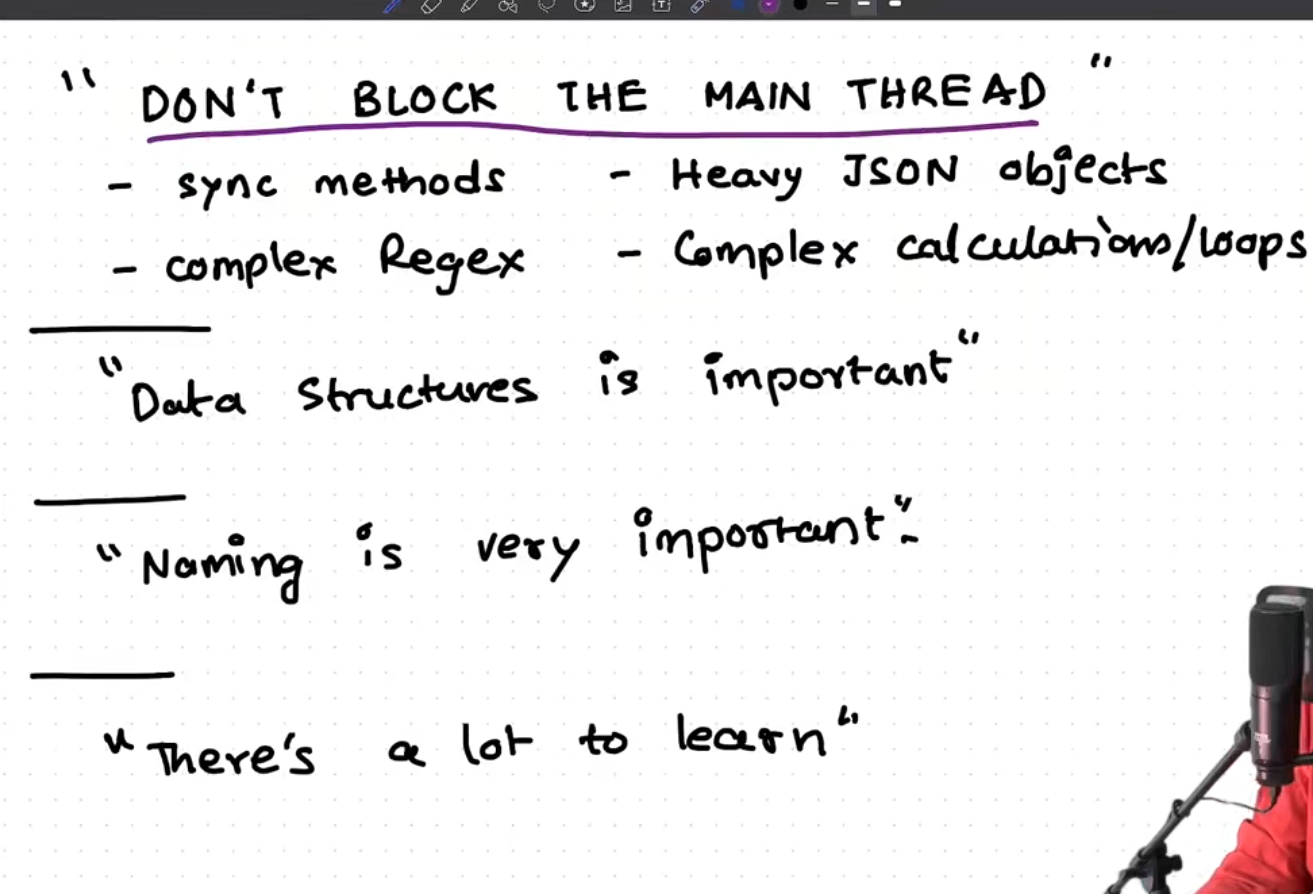 " DON'T BLOCK THE MAIN THREAD "
- sync methods - Heavy JSON objects
- complex Regex - Complex calculations/loops
"Data Structures is important"
"Naming is very important".
"There's a lot to learn"